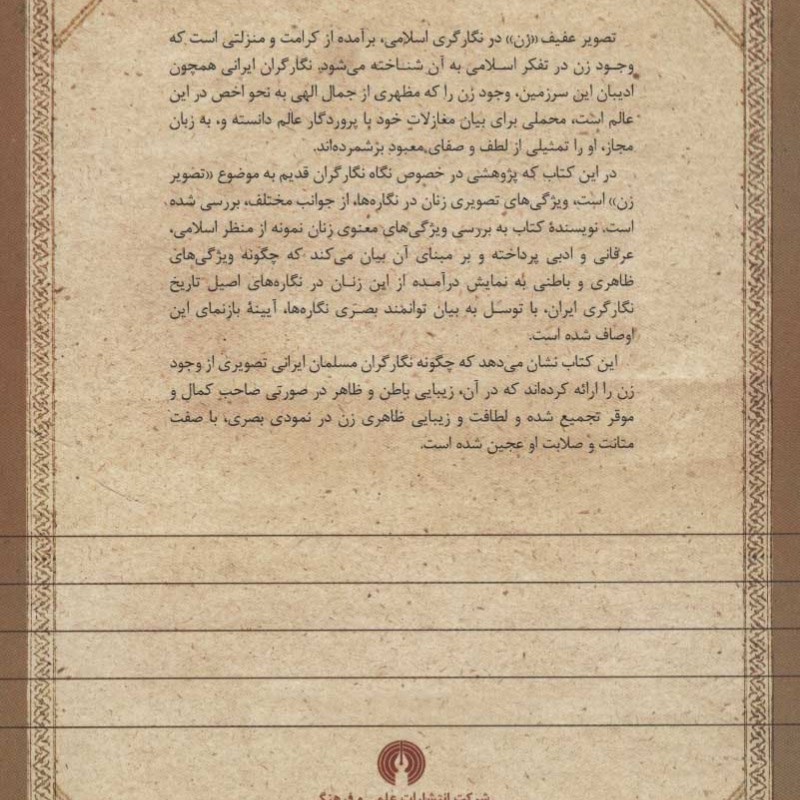 تصویر عفیف «زن» در نگارگری اسلامی، برآمده از کرامت و منزلتی است که
وجود زن در تفکر اسلامی به آن شناخته می‌شود. نگارگران ایرانی همچون
ادیبان این سرزمین، وجود زن را که مظهری از جمال الهی به نحو اخص در این
عالم است، محملی برای بیان مغازلات خود با پروردگار عالم دانسته و، به زبان
مجاز، او را تمثیلی از لطف و صفای معبود برشمرده‌اند.
در این کتاب که پژوهشی در خصوص نگاه نگارگران قدیم به موضوع «تصویر
زن» است، ویژگی‌های تصویری زنان در نگاره‌ها، از جوانب مختلف، بررسی شده
است. نویسندهٔ کتاب به بررسی ویژگی‌های معنوی زنان نمونه از منظر اسلامی،
عرفانی و ادبی پرداخته و بر مبنای آن بیان می‌کند که چگونه ویژگی‌های
ظاهری و باطنی به نمایش درآمده از این زنان در نگاره‌های اصیل تاریخ
نگارگری ایران، با توسل به بیان توانمند بصری نگاره‌ها، آیینهٔ بازنمای این
اوصاف شده است.
این کتاب نشان می‌دهد که چگونه نگارگران مسلمان ایرانی تصویری از وجود
زن را ارائه کرده‌اند که در آن، زیبایی باطن و ظاهر در صورتی صاحب کمال و
موقر تجمیع شده و لطافت و زیبایی ظاهری زن در نمودی بصری، با صفت
متانت و صلابت او عجین شده است.
شرکت انتشارات علمی و فرهنگی